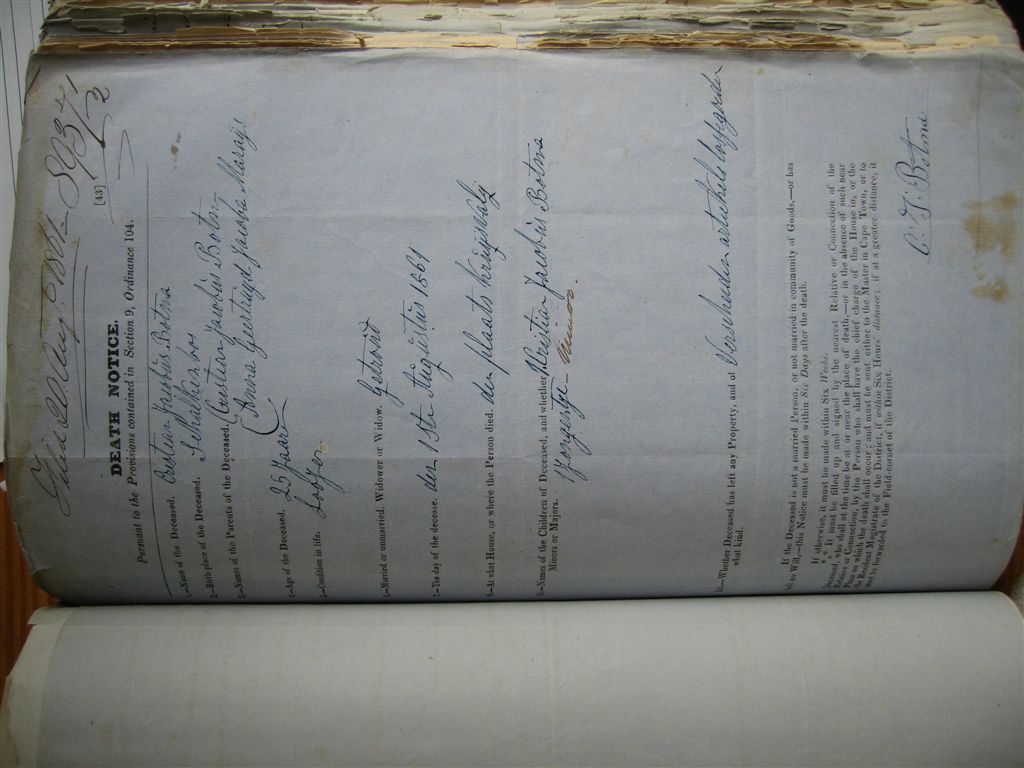 8937/2
[43]
DEATH NOTICE.
Pursuant to the Provisions contained in Section 9, Ordinance 104.
1—Name of the Deceased. Cristian Jacobus Botma
2—Birth-place of the Deceased.
3—Names of the Parents of the Deceased. Cristian Jacobus Botma
Anna Geertruyd Jacoba Marays
4—Age of the Deceased. 25 Jaare
5—Condition in life.
6—Married or unmarried, Widower or Widow. Getrouwt
7—The day of the decease. den 15th Augustus 1861
8—At what House, or where the Person died. den plaats
9—Names of the Children of Deceased, and whether Kristian Jacobus Botma
Minors or Majors. Jongentje Minor.
10—Whether Deceased has left any Property, and of Verscheiden
what kind.
If the Deceased is not a married Person, or not married in community of Goods,—or has
left no Will,—this Notice must be made within Six Days after the death.
If otherwise, it must be made within Six Weeks.
*** It must be filled up and signed by the nearest Relative or Connection of the
Deceased, who shall at the time be at or near the place of death,—or in the absence of such near
Relative or Connection, by the Person who shall have the chief charge of the House in, or the
Place on which the death shall occur; and must be sent either to the Master in Cape Town, or to
the Resident Magistrate of the District, if within Six Hours' distance; if at a greater distance, it
must be forwarded to the Field-cornet of the District.
C. J. Botma